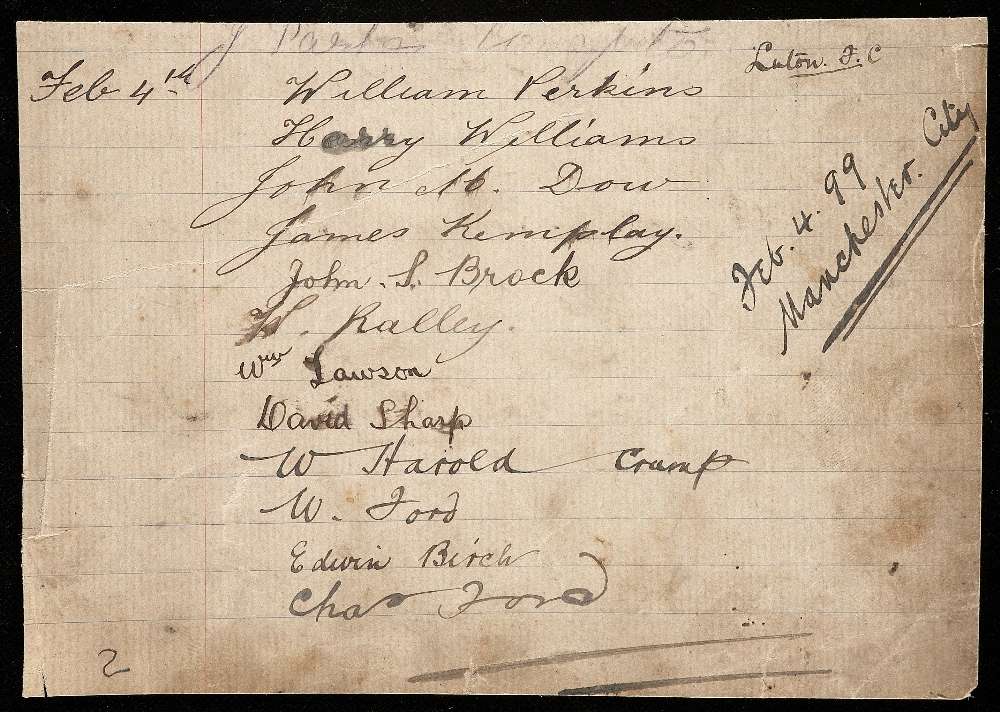 Luton. F. C
Feb 4th
William Perkins
Harry Williams
John M. Dow
James Kemplay.
John. S. Brock
W. Kalley.
Wm Lawson
David Sharp
W Harold Crump
W. Ford
Edwin Birch
Chas Ford
Feb. 4. 99
Manchester. City
2